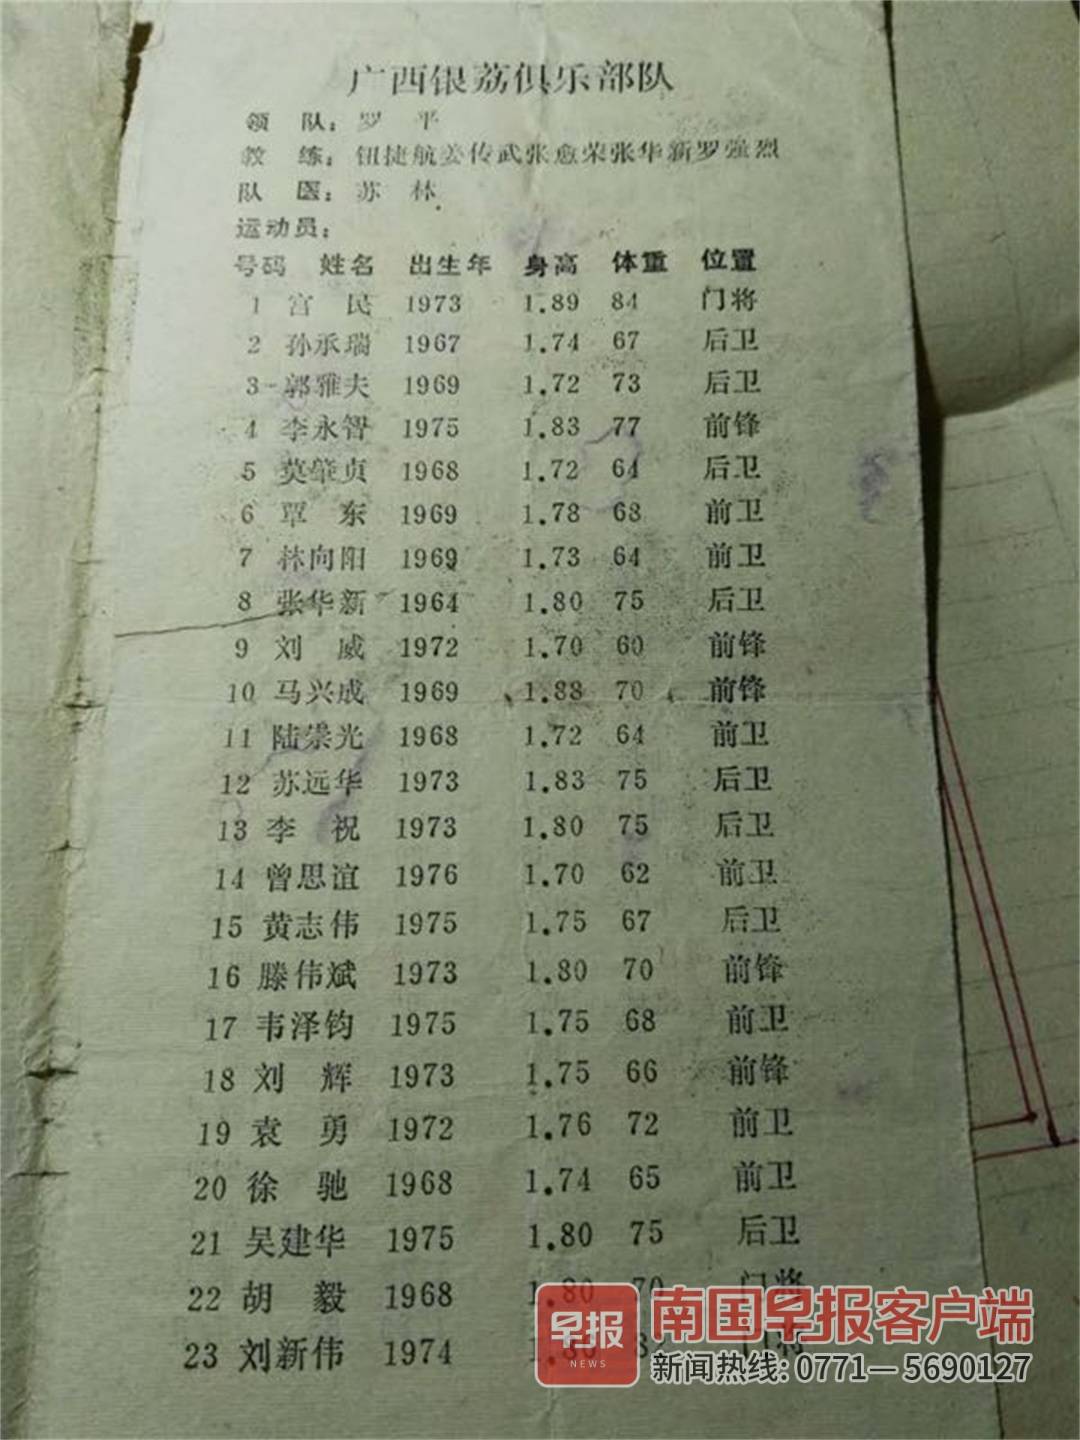 广西银荔俱乐部队
领 队：罗 平
教 练：钮捷航姜传武张愈荣张华新罗强烈
队 医：苏 林
运动员：
号码 姓名 出生年 身高 体重 位置
1 宫 民 1973 1.89 84 门将
2 孙承瑞 1967 1.74 67 后卫
3 郭雅夫 1969 1.72 73 后卫
4 李永智 1975 1.83 77 前锋
5 莫肇贞 1968 1.72 64 后卫
6 覃 东 1969 1.78 68 前卫
7 林向阳 1969 1.73 64 前卫
8 张华新 1964 1.80 75 后卫
9 刘 威 1972 1.70 60 前锋
10 马兴成 1969 1.88 70 前锋
11 陆崇光 1968 1.72 64 前卫
12 苏远华 1973 1.83 75 后卫
13 李 祝 1973 1.80 75 后卫
14 曾思谊 1976 1.70 62 前卫
15 黄志伟 1975 1.75 67 后卫
16 滕伟斌 1973 1.80 70 前锋
17 韦泽钧 1975 1.75 68 前卫
18 刘 辉 1973 1.75 66 前锋
19 袁 勇 1972 1.76 72 前卫
20 徐 驰 1968 1.74 65 前卫
21 吴建华 1975 1.80 75 后卫
22 胡 毅 1968 1.80 70 门将
23 刘新伟 1974 门将
早报
NEWS
南国早报客户端
新闻热线：0771—5690127